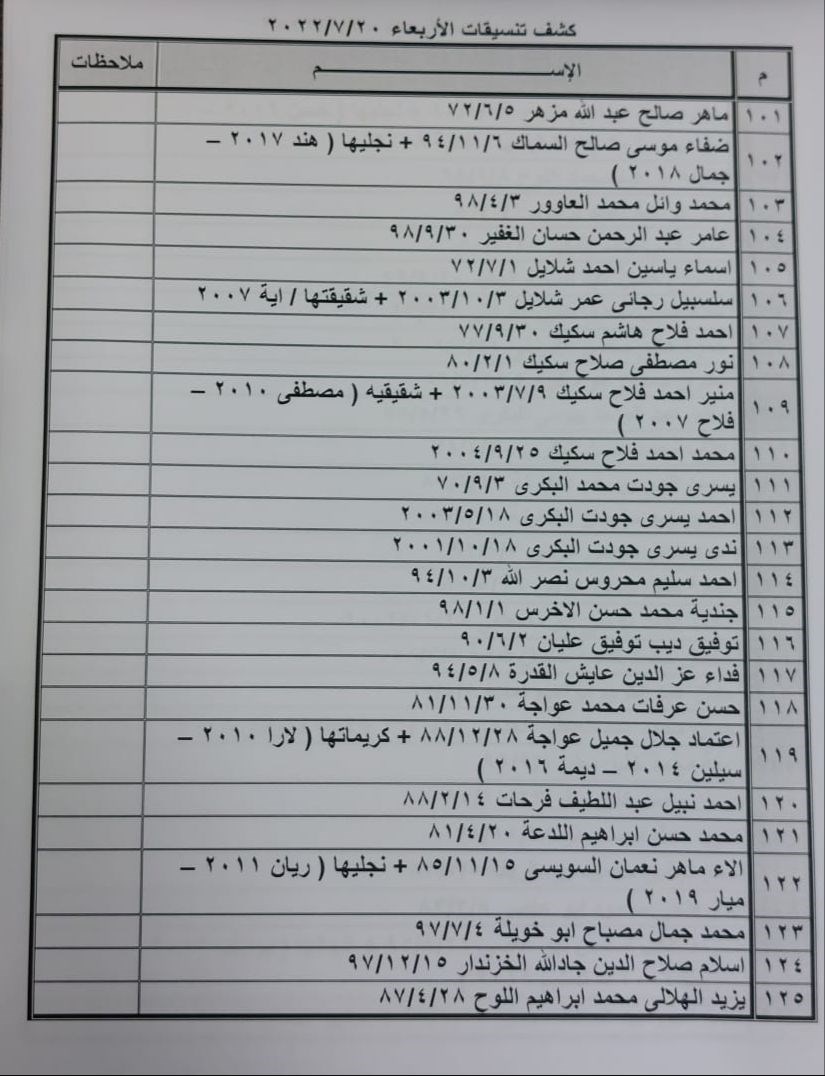 كشف تنسيقات الأربعاء ٢٠٢٢/٧/٢٠
م الإســــــــم ملاحظات
١٠١ ماهر صالح عبد الله مزهر ٧٢/٦/٥
١٠٢ ضفاء موسى صالح السماك ٩٤/١١/٦ + نجليها ( هند ٢٠١٧ –
جمال ٢٠١٨ )
١٠٣ محمد وائل محمد العاوور ٩٨/٤/٣
١٠٤ عامر عبد الرحمن حسان الغفير ٩٨/٩/٣٠
١٠٥ اسماء ياسين احمد شلايل ٧٢/٧/١
١٠٦ سلسبيل رجائى عمر شلايل ٢٠٠٣/١٠/٣ + شقيقتها / اية ٢٠٠٧
١٠٧ احمد فلاح هاشم سكيك ٧٧/٩/٣٠
١٠٨ نور مصطفى صلاح سكيك ٨٠/٢/١
١٠٩ منير احمد فلاح سكيك ٢٠٠٣/٧/٩ + شقيقيه ( مصطفى ٢٠١٠ –
فلاح ٢٠٠٧ )
١١٠ محمد احمد فلاح سكيك ٢٠٠٤/٩/٢٥
١١١ يسرى جودت محمد البكرى ٧٠/٩/٣
١١٢ احمد يسرى جودت البكرى ٢٠٠٣/٥/١٨
١١٣ ندى يسرى جودت البكرى ٢٠٠١/١٠/١٨
١١٤ احمد سليم محروس نصر الله ٩٤/١٠/٣
١١٥ جندية محمد حسن الاخرس ٩٨/١/١
١١٦ توفيق ديب توفيق عليان ٩٠/٦/٢
١١٧ فداء عز الدين عايش القدرة ٩٤/٥/٨
١١٨ حسن عرفات محمد عواجة ٨١/١١/٣٠
١١٩ اعتماد جلال جميل عواجة ٨٨/١٢/٢٨ + كريماتها ( لارا ٢٠١٠ –
سيلين ٢٠١٤ – ديمة ٢٠١٦ )
١٢٠ احمد نبيل عبد اللطيف فرحات ٨٨/٢/١٤
١٢١ محمد حسن ابراهيم اللدعة ٨١/٤/٢٠
١٢٢ الاء ماهر نعمان السويسى ٨٥/١١/١٥ + نجليها ( ريان ٢٠١١ –
ميار ٢٠١٩ )
١٢٣ محمد جمال مصباح ابو خويلة ٩٧/٧/٤
١٢٤ اسلام صلاح الدين جادالله الخزندار ٩٧/١٢/١٥
١٢٥ يزيد الهلالى محمد ابراهيم اللوح ٨٧/٤/٢٨